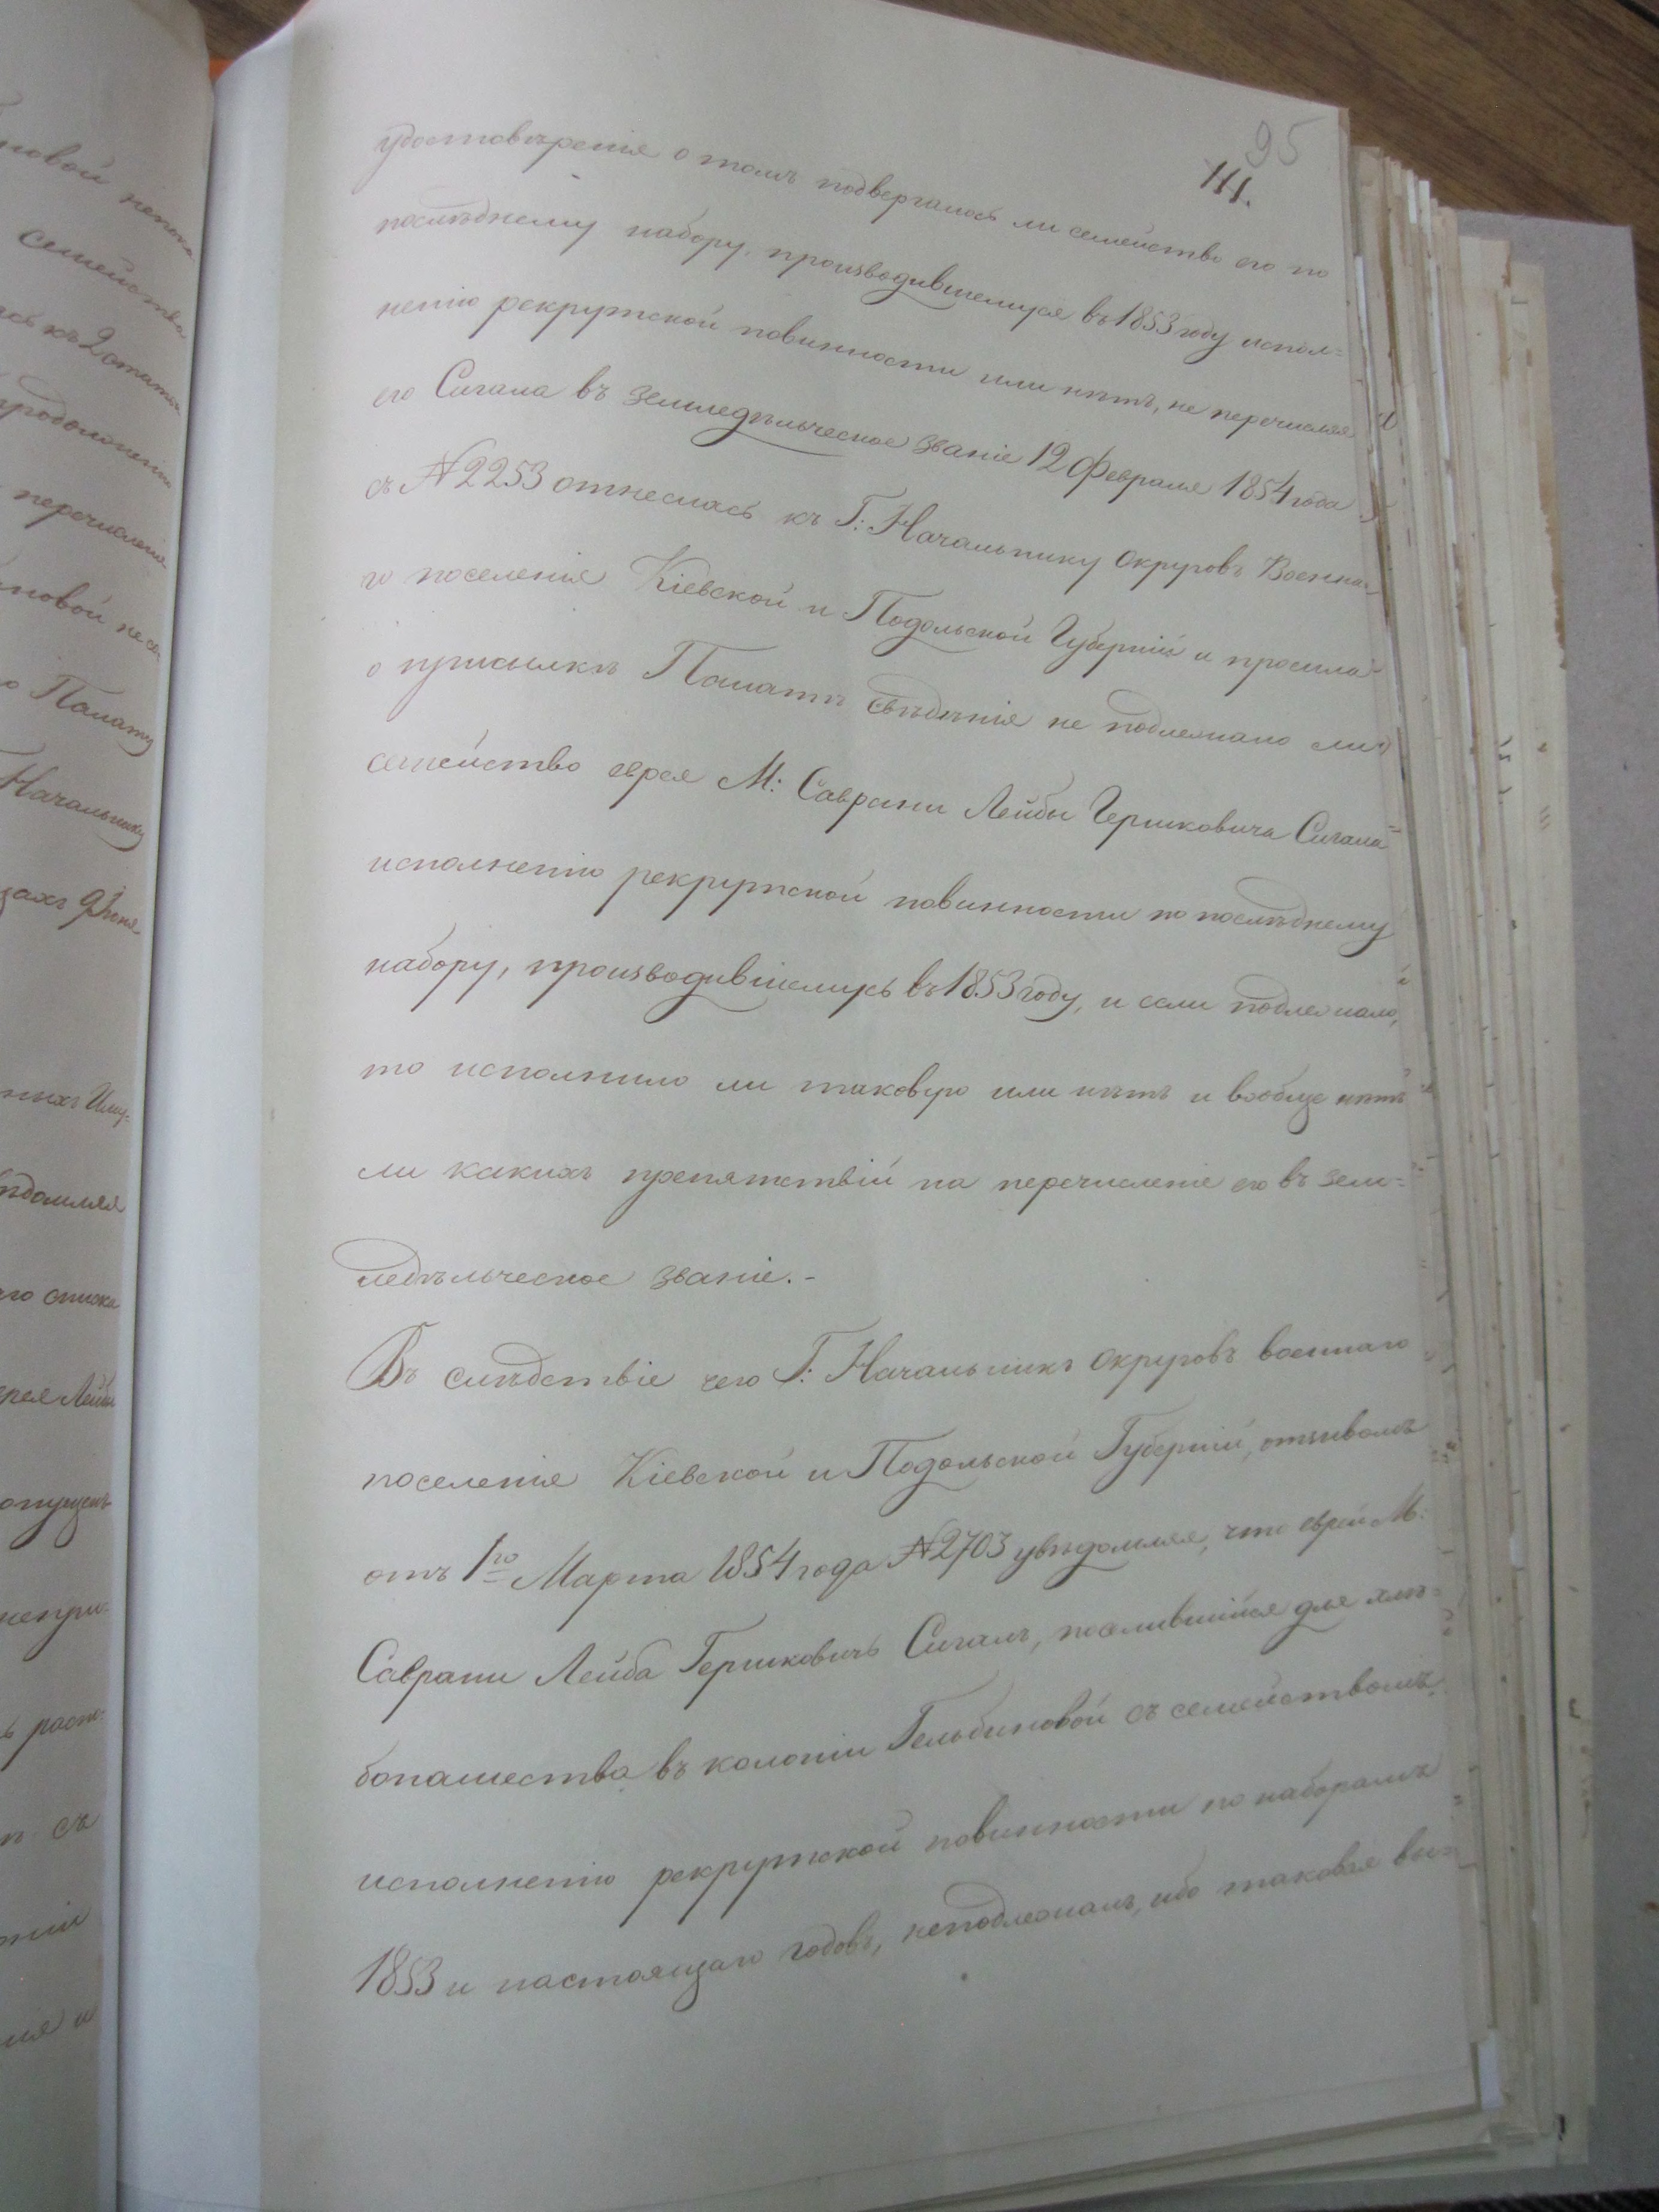 95
111.
удостовѣренія о томъ подвергалось ли семейство его по
послѣднему набору, производившемуся въ 1853 году испол=
ненію рекрутской повинности или нѣтъ, не перечисляя
его Сигала въ земледѣльческое званіе 12 Февраля 1854 года
съ №2253 отнеслась къ Г: Начальнику Округовъ Военна=
го поселенія Кіевской и Подольской Губерній и просила
о присылкѣ Палатѣ свѣдѣнія не подлежало ли
семейство еврея М: Саврани Лейбы Гершковича Сигала
исполненію рекрутской повинности по послѣднему
набору, производившемусь въ 1853 году, и если подлежало,
то исполнило ли таковую или нѣтъ и вообще нѣтъ
ли какихъ препятствій на перечисленіе его въ зем=
ледѣльческое званіе.-
Въ слѣдствіе чего Г: Начальникъ Округовъ военнаго
поселенія Кіевской и Подольской Губерній, отзывомъ
отъ 1го Марта 1854 года №2703 увѣдомляя, что еврей М:
Саврани Лейба Гершковичъ Сигалъ, поселившійся для хлѣ=
бопашества въ колоніи Гельбиновой съ семействомъ
исполненію рекрутской повинности по наборамъ
1853 и настоящаго годовъ, неподлежалъ, ибо таковые
новой
семейства
перечисленія
новой
Палату
Начальнику
ныхъ Иму=
списка
съ